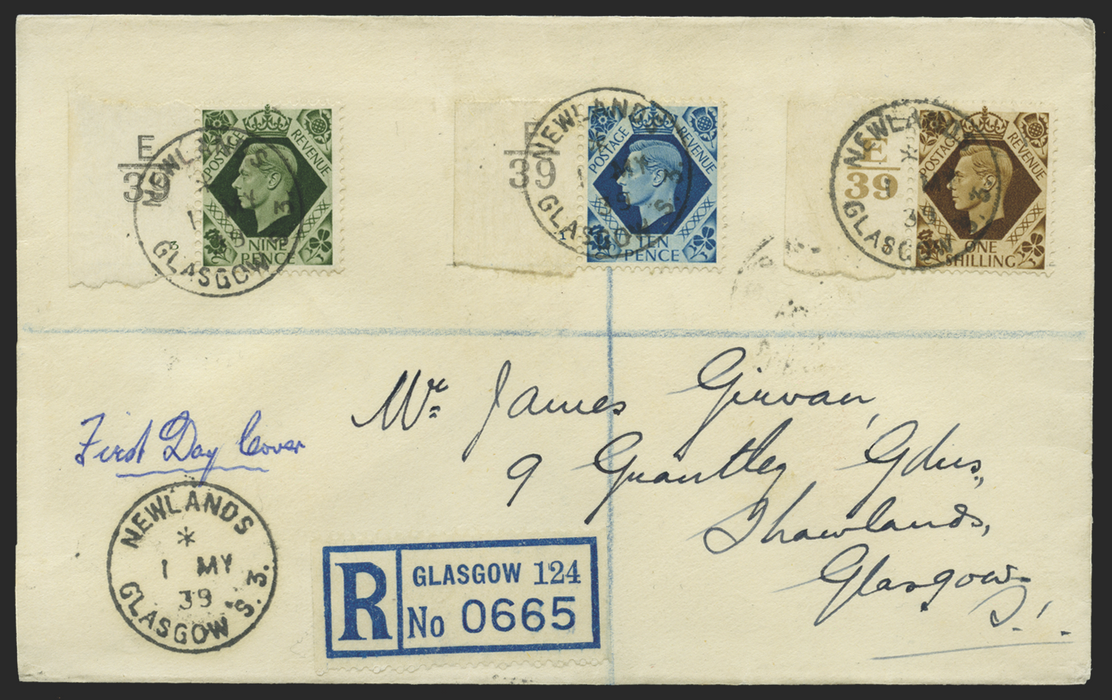 E
39
POSTAGE REVENUE
NINE
PENCE
NEWLANDS
GLASGOW S. 3
E
39
POSTAGE REVENUE
TEN
PENCE
NEWLANDS
1 MY
39
GLASGOW S. 3
E
39
POSTAGE REVENUE
ONE
SHILLING
NEWLANDS
*
1
39
GLASGOW S. 3
Mr. James Girvan,
9 Grantley Gdns,
Shawlands,
Glasgow
S.1.
First Day Cover
NEWLANDS
*
1 MY
39
GLASGOW S. 3.
R
GLASGOW 124
No 0665